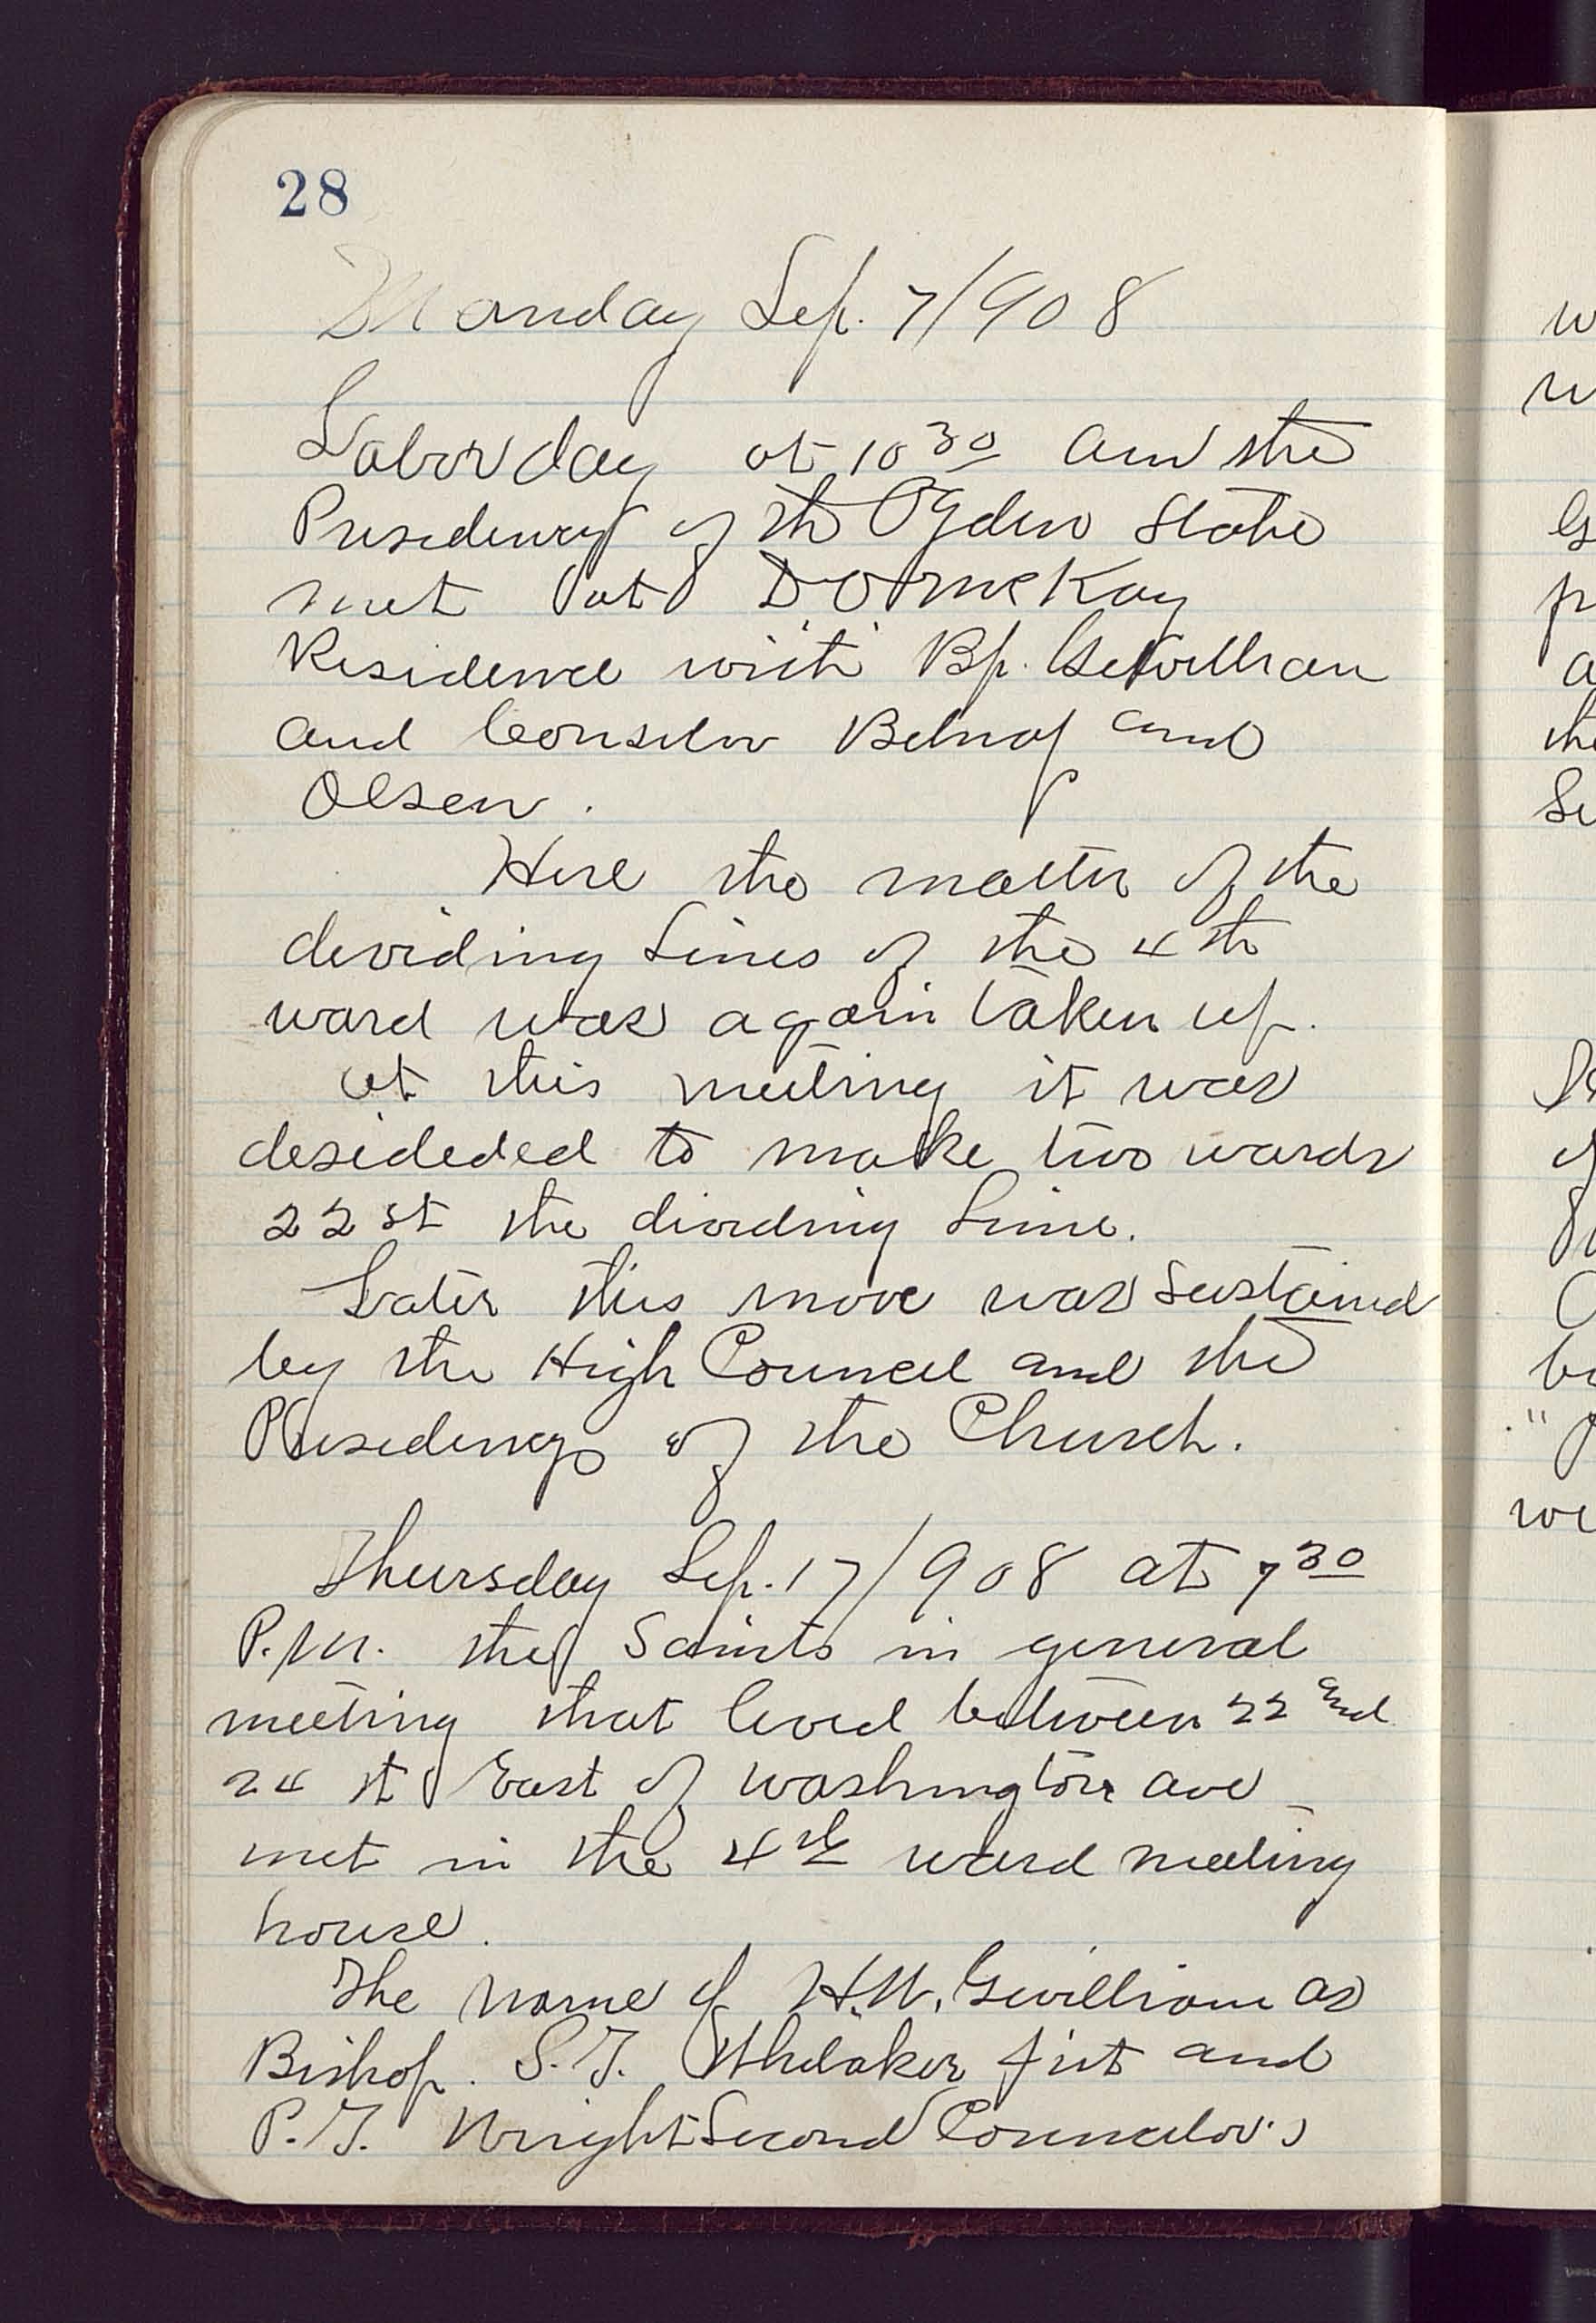 28
Monday Sep. 7/908
Labor day at 10 30 am the
Presidency of th Ogden Stake
met at D O McKay
Residence with Bp. Gwillian
and Counselor Belnap and
Olsen.
Here the matter of the
deviding Lines of the 4th
ward was again taken up.
at this meeting it was
desideded to make two wards
22 st the dividing Line.
Later this move was Sustained
by the High Council and the
Presidency of the Church.
Thursday Sep. 17/908 at 7 30
P.M. the Saints in general
meeting that lived between 22 and
24 st East of Washington ave
met in the 4th ward meeting
house.
The name of H.W. Gwilliam as
Bishop. S.T. Whitaker first and
P.T. Wright Second Councelors